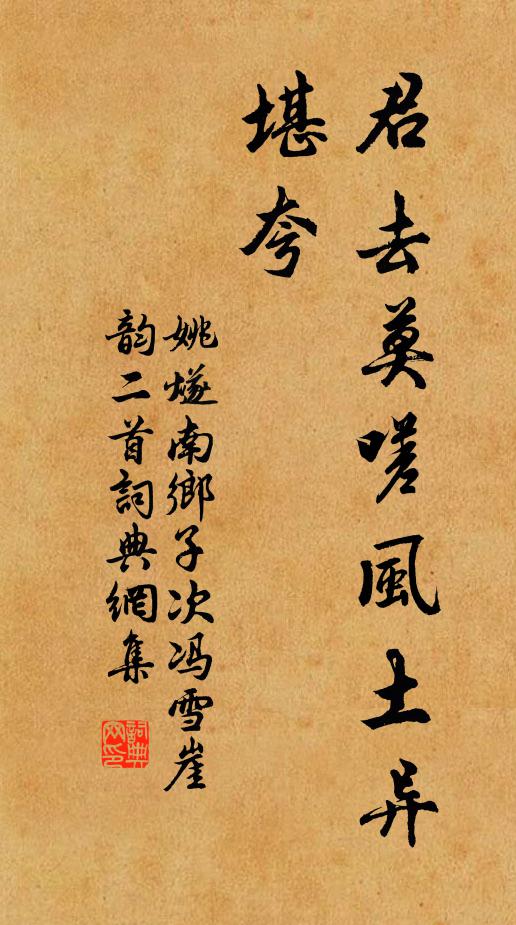 君去莫嗟風土异
堪夸
姚燧南鄉子次冯雪崖
韵二首詞典網集
詞典網印